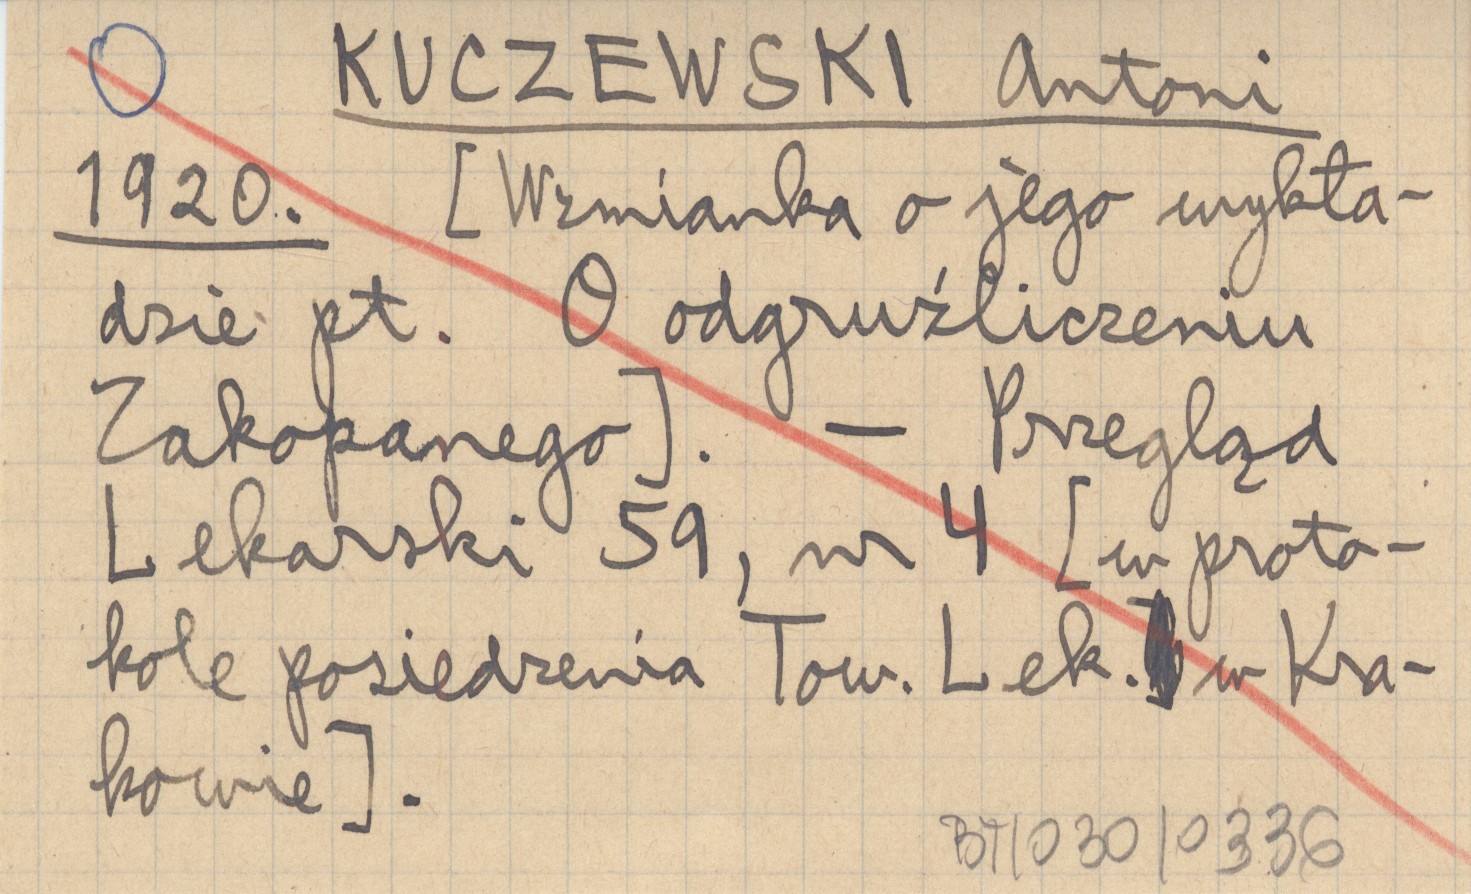 KUCZEWSKI Antoni
1920. [Wzmianka o jego wykła-
dzie pt. O odgruźliczeniu
Zakopanego]. — Przegląd
Lekarski 59, nr 4 [w proto-
kole posiedzenia Tow. Lek. w Kra-
kowie].
BT/030/0336